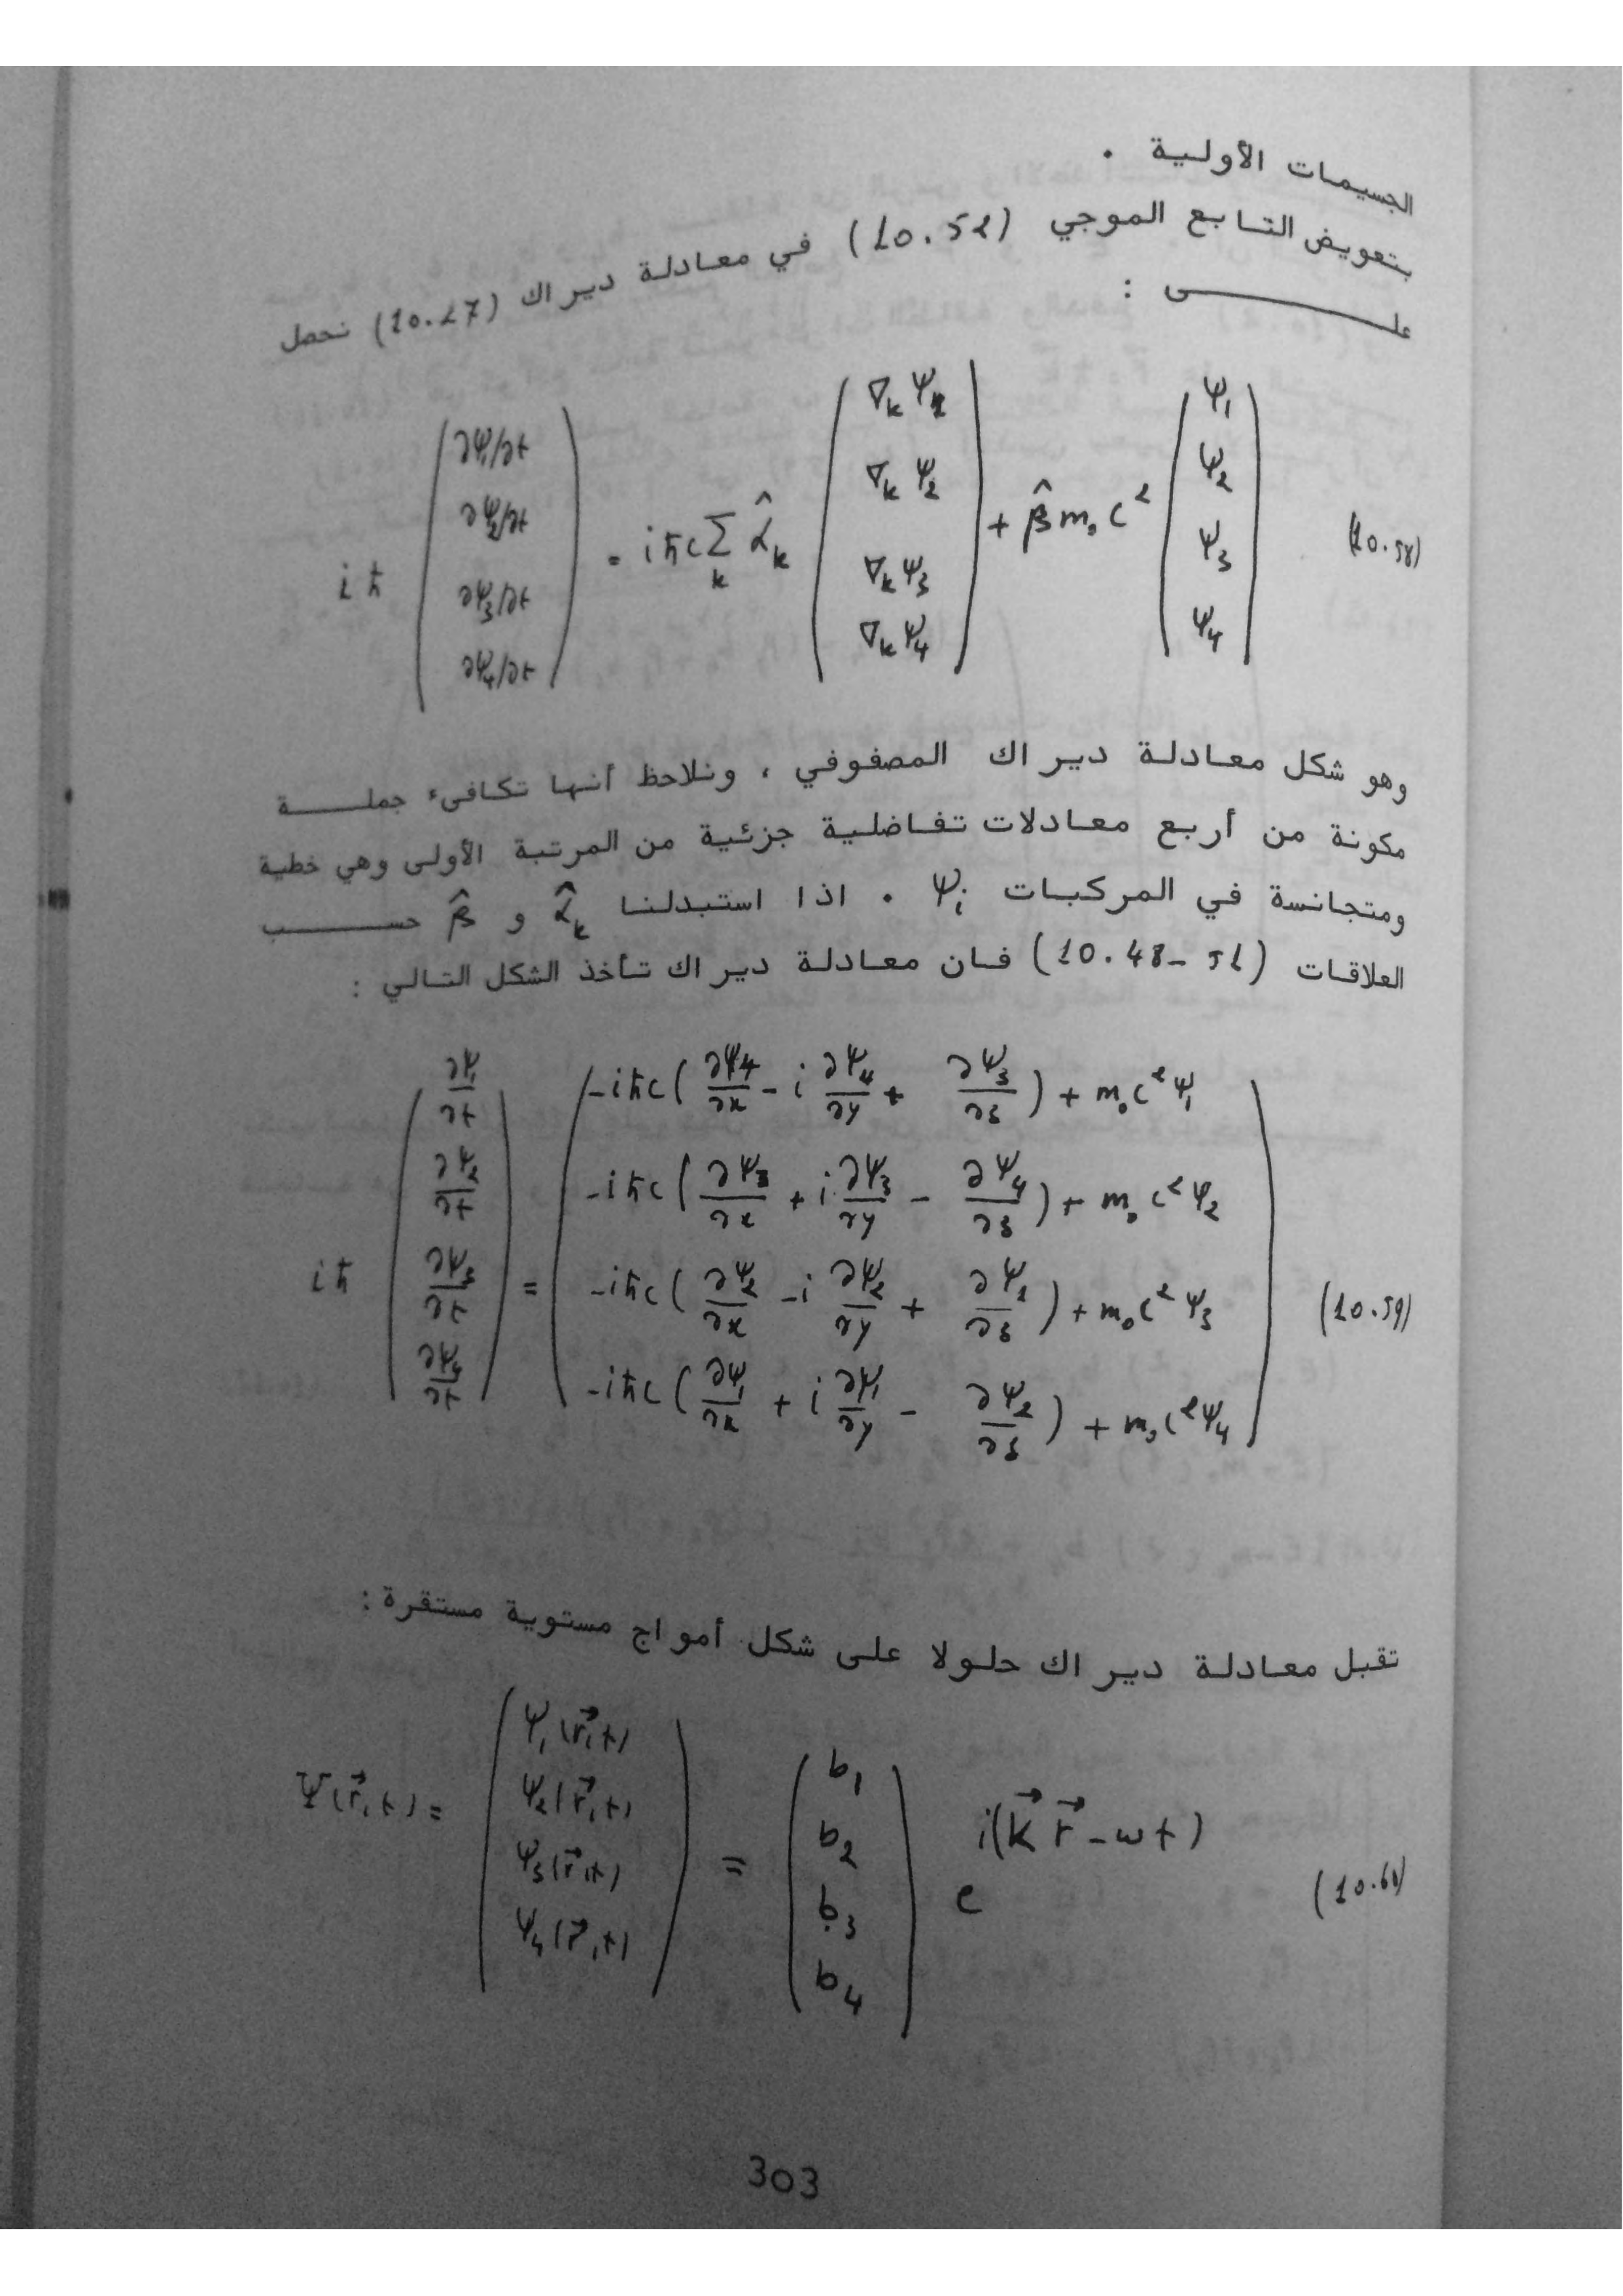 الجسيمات الأولية .
بتعويض التابع الموجي (10.52) في معادلة ديراك (10.27) نحصل
على :
iħ (∂ψ₁/∂t ∂ψ₂/∂t ∂ψ₃/∂t ∂ψ₄/∂t) = iħc Σ_k α̂_k (∇_k ψ₁ ∇_k ψ₂ ∇_k ψ₃ ∇_k ψ₄) + β̂ m₀ c² (ψ₁ ψ₂ ψ₃ ψ₄) (10.58)
وهو شكل معادلة ديراك المصفوفي ، ونلاحظ أنها تكافىء جملة
مكونة من أربع معادلات تفاضلية جزئية من المرتبة الأولى وهي خطية
ومتجانسة في المركبات ψᵢ . اذا استبدلنا α̂_k و β̂ حسب
العلاقات (10.48-51) فان معادلة ديراك تأخذ الشكل التالي :
iħ (∂ψ₁/∂t ∂ψ₂/∂t ∂ψ₃/∂t ∂ψ₄/∂t) =
-iħc (∂ψ₄/∂x - i ∂ψ₄/∂y + ∂ψ₃/∂z) + m₀c²ψ₁
-iħc (∂ψ₃/∂x + i ∂ψ₃/∂y - ∂ψ₄/∂z) + m₀c²ψ₂
-iħc (∂ψ₂/∂x - i ∂ψ₂/∂y + ∂ψ₁/∂z) + m₀c²ψ₃ (10.59)
-iħc (∂ψ₁/∂x + i ∂ψ₁/∂y - ∂ψ₂/∂z) + m₀c²ψ₄
تقبل معادلة ديراك حلولا على شكل أمواج مستوية مستقرة :
Ψ(r⃗,t) = (ψ₁(r⃗,t) ψ₂(r⃗,t) ψ₃(r⃗,t) ψ₄(r⃗,t)) = (b₁ b₂ b₃ b₄) e^{i(k⃗ r⃗ - ωt)} (10.60)
303